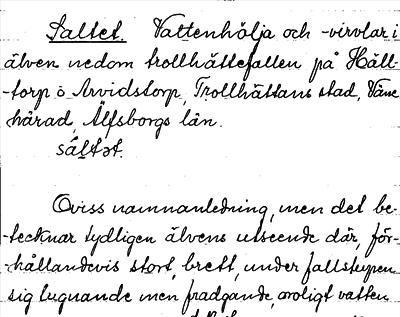 Saltet. Vattenhölja och -virvlar i
älven nedom trollhättefallen på Håll-
-torp o Arvidstorp, Trollhättans stad, Väne
härad, Älfsborgs län.
såltət.
Oviss namnanledning, men det be-
-tecknar tydligen älvens utseende där, för-
-hållandevis stort, brett, under fallstupen
sig lugnande men fradgande, oroligt vatten